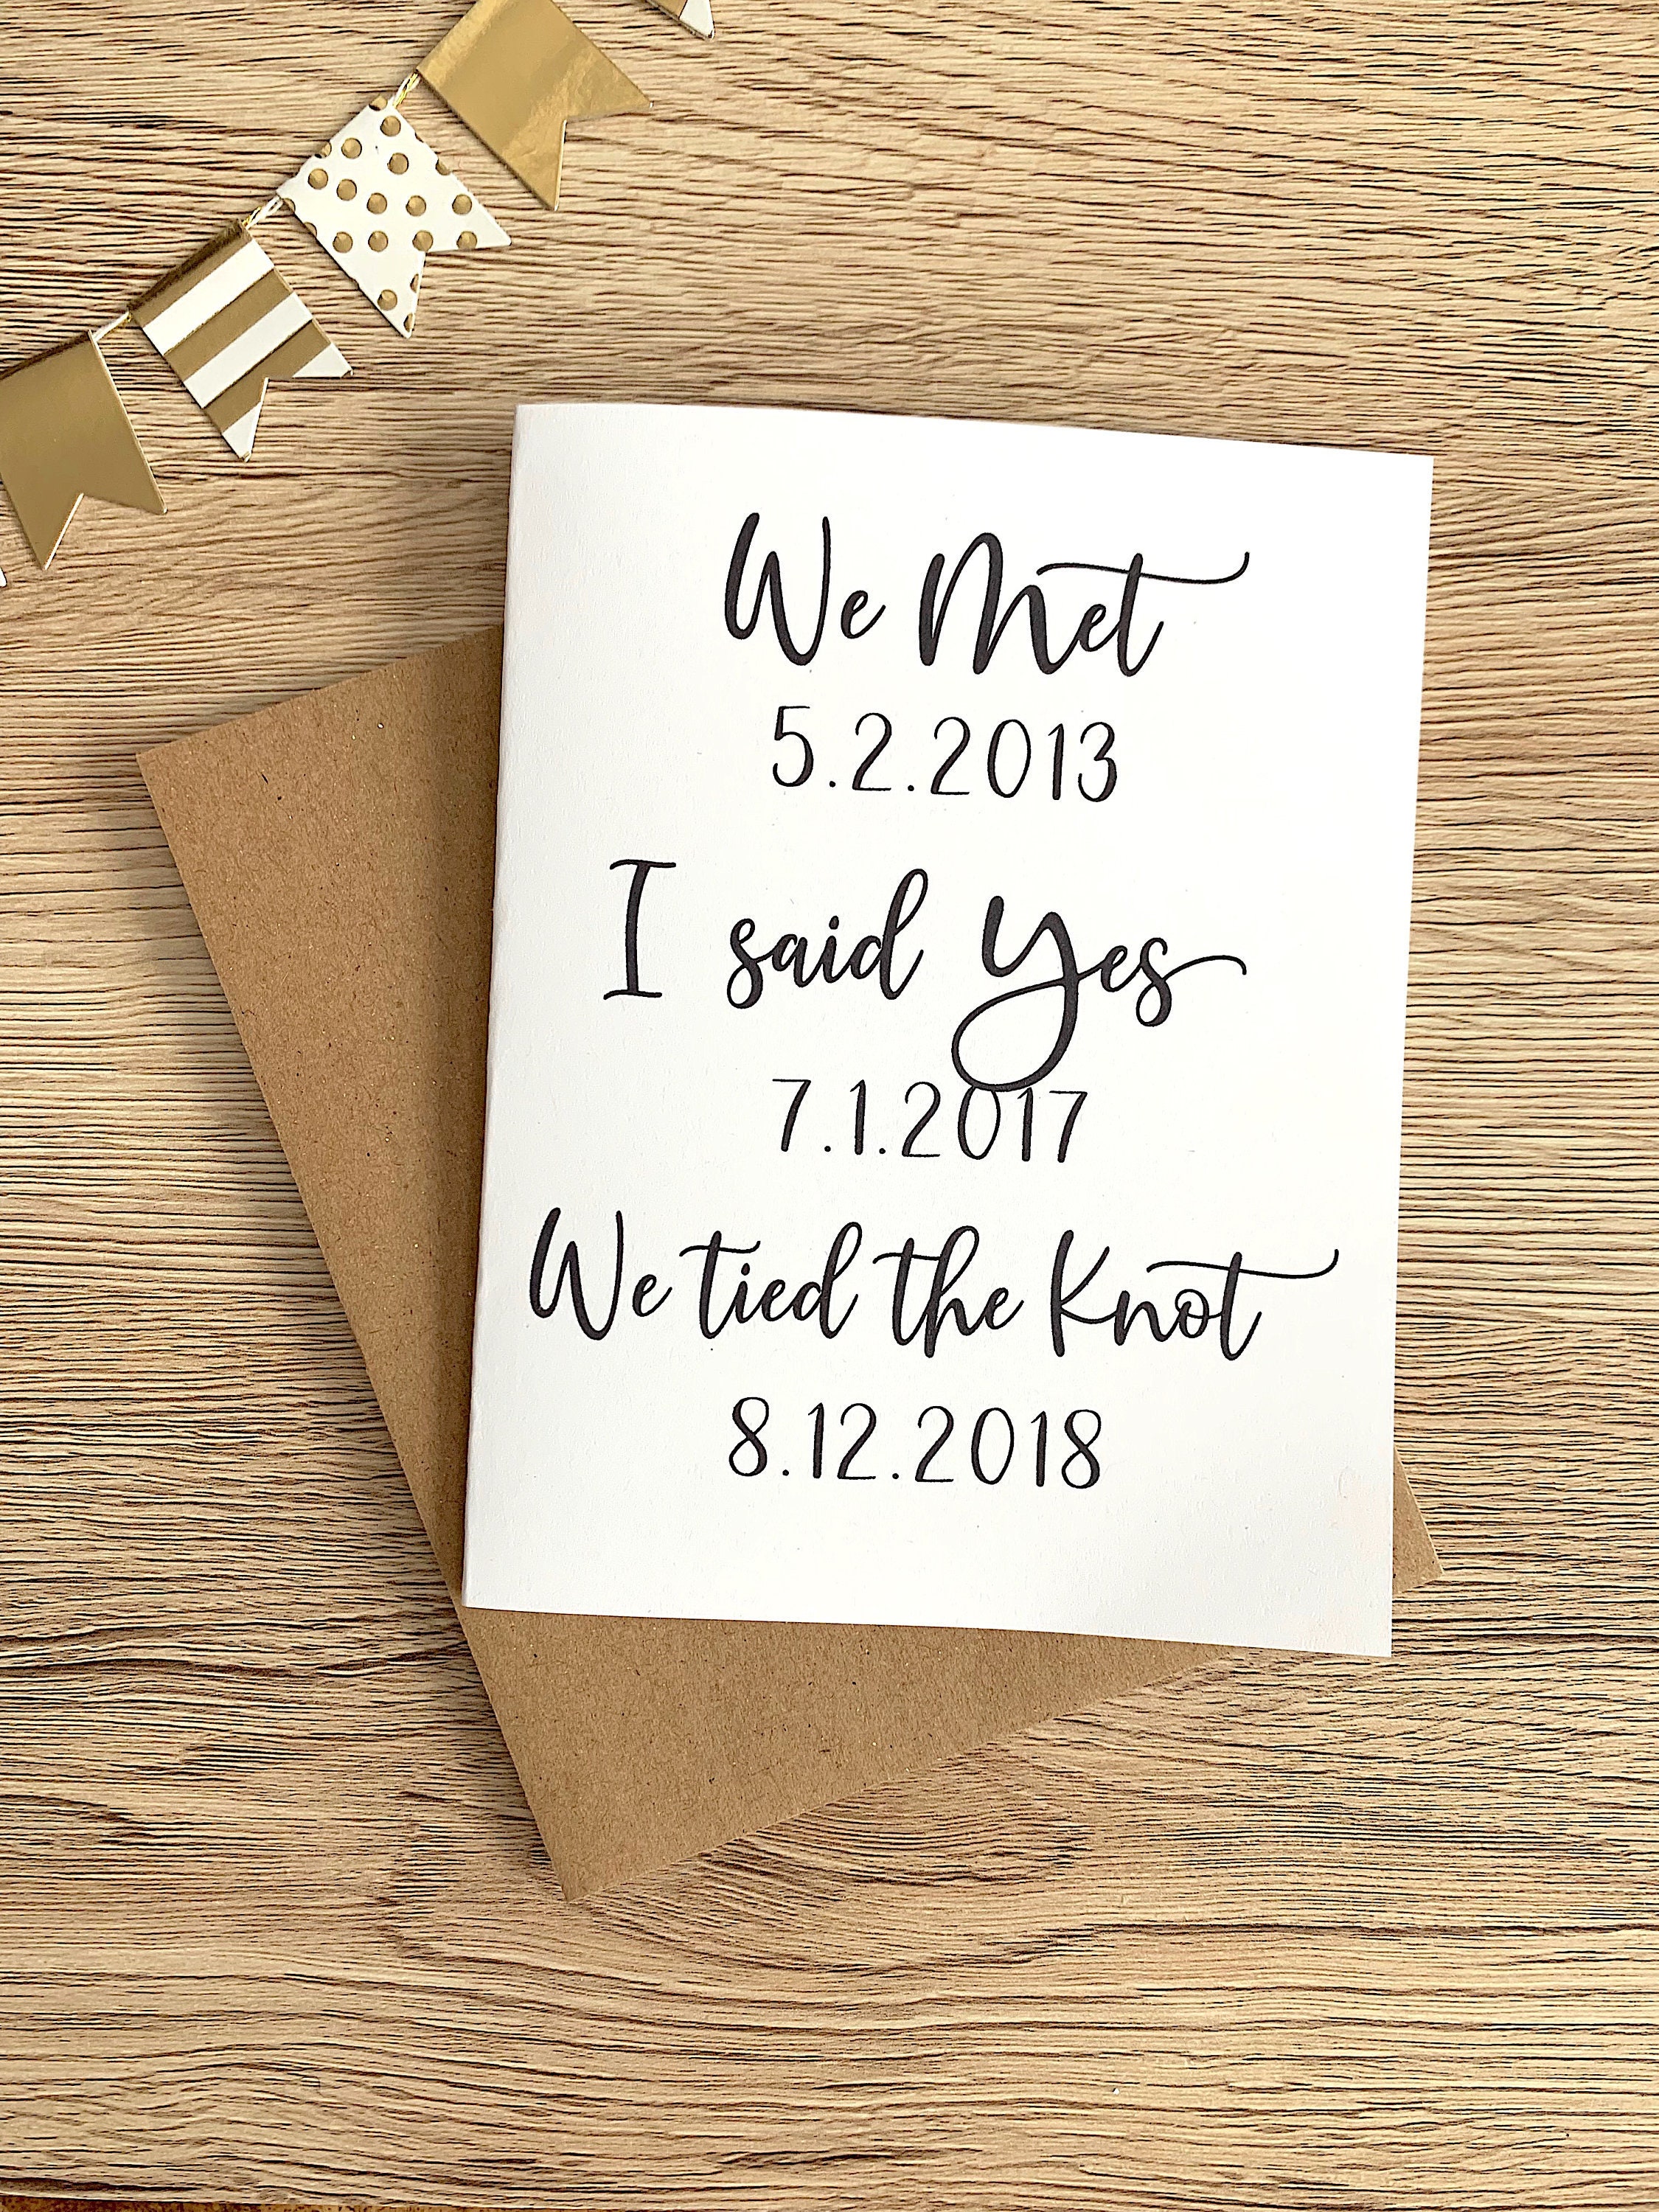 We Met
5.2.2013
I said Yes
7.1.2017
We tied the Knot
8.12.2018